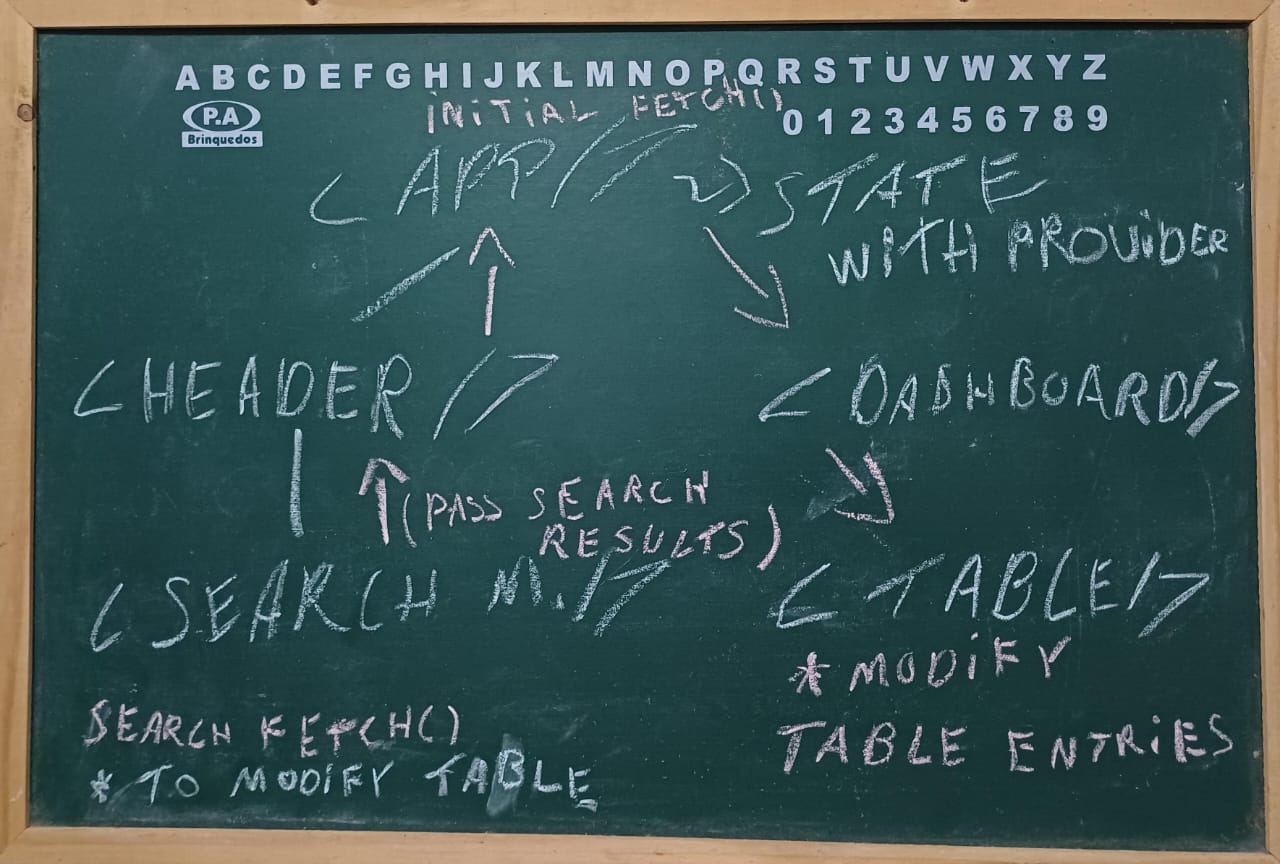 ABCDEFGHIJKLMNOPQRSTUVWXYZ
P.A
Brinquedos
0123456789
INITIAL FETCH()
<APP/> 2) STATE
WITH PROVIDER
<HEADER/>
<DASHBOARD/>
(PASS SEARCH
RESULTS)
<SEARCH M./>
<TABLE/>
* MODIFY
TABLE ENTRIES
SEARCH FETCH()
* TO MODIFY TABLE